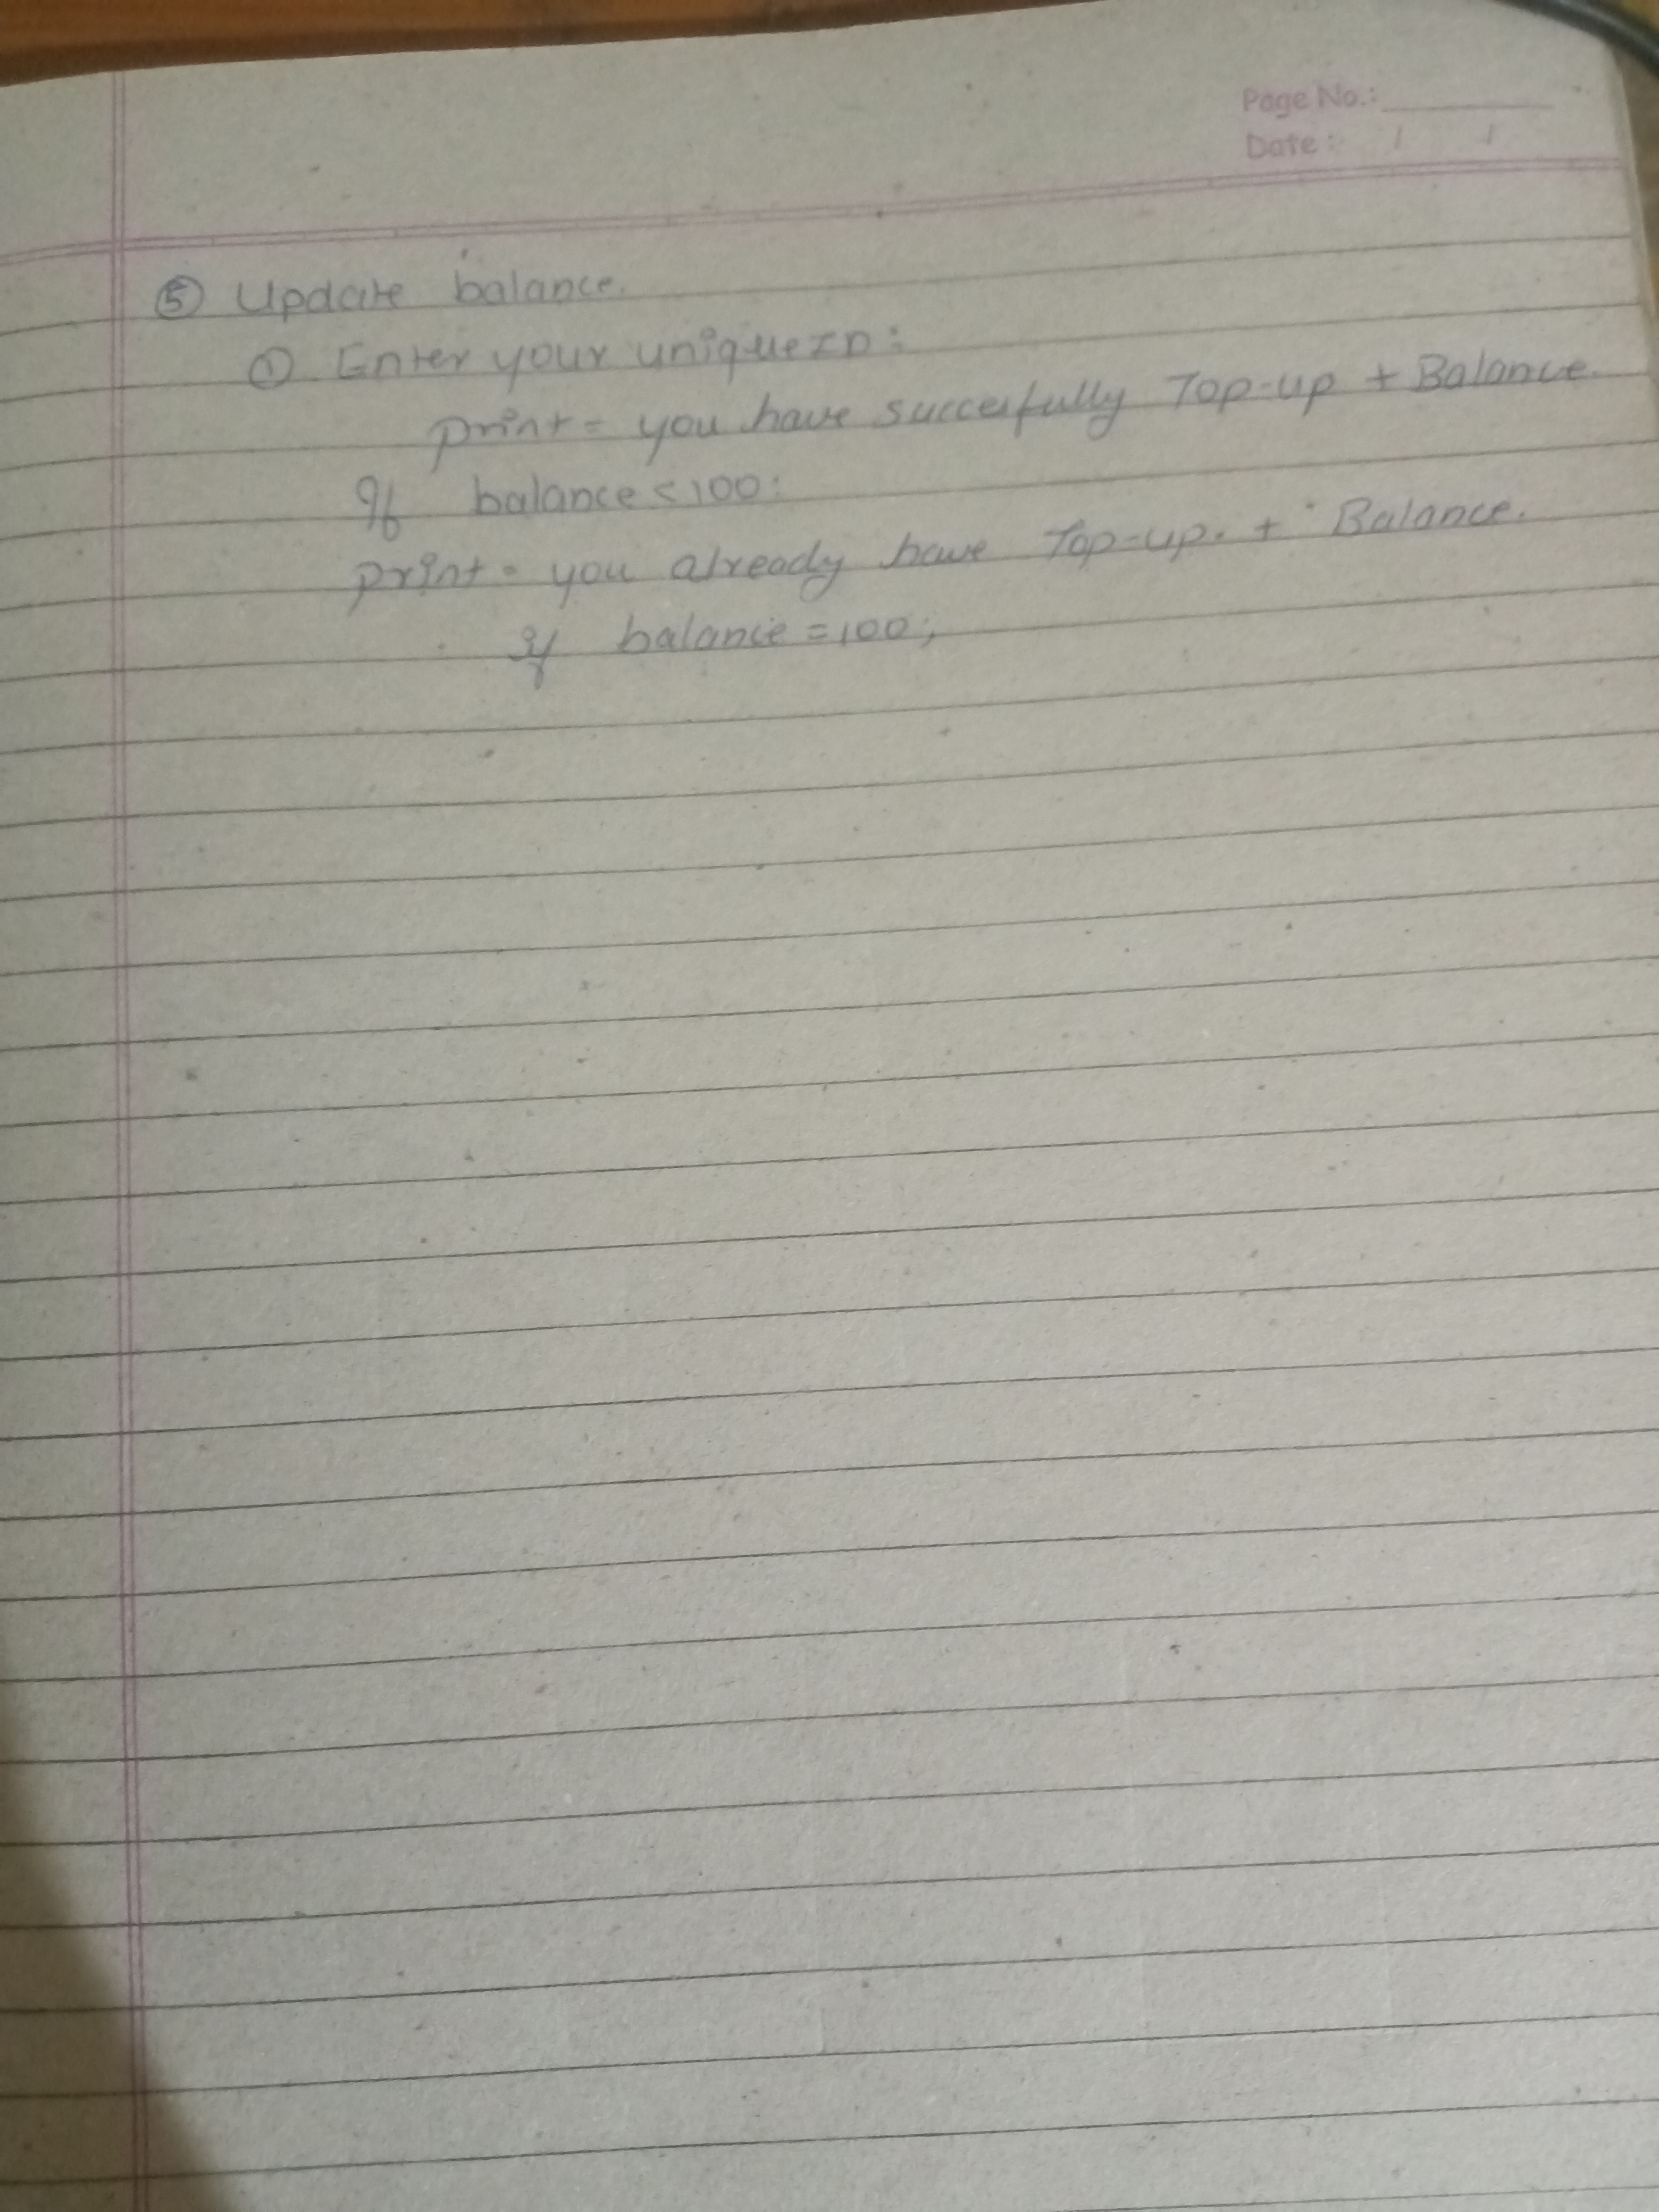 Page No.:
Date: / /
⑤ Update balance.
① Enter your unique ID:
print = you have succesfully Top-up + Balance.
If balance < 100:
print = you already have Top-up. + Balance.
if balance = 100;